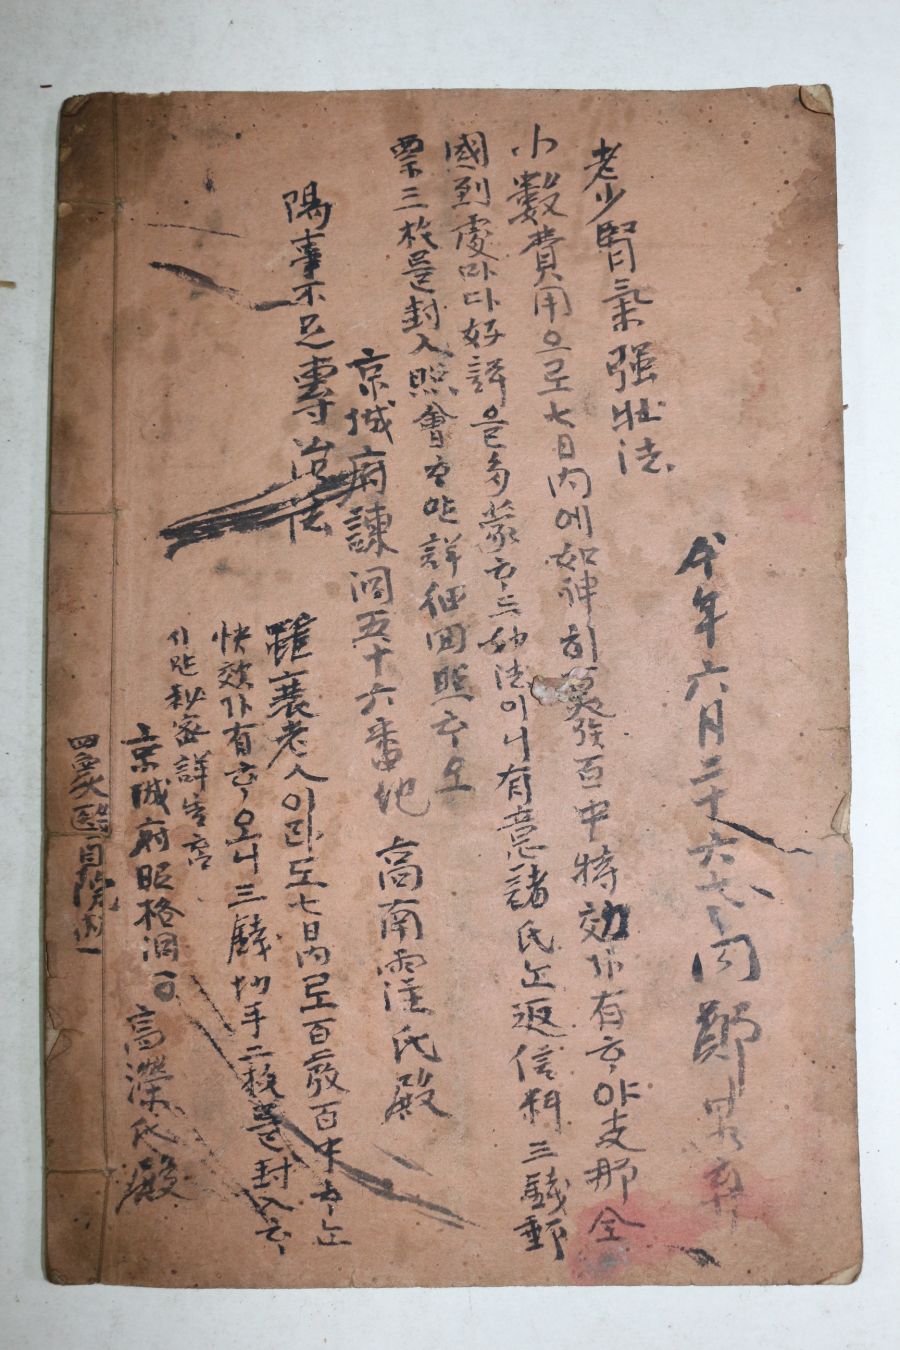 仝年六月二十六七日 鄭
老少腎氣强壯法
小數費用으로七日內에如神한 效百中特効가有하야支那全
國到處마다好評을多蒙하는妙法이니有意諸氏는返信料三錢郵
票三枚을封入照會하면詳細回照하오
京城府諫洞五十六番地 高南 氏殿
陽事不足專治法
雖衰老人이라도七日內로百發百中하는
快效가有하오니三錢切手二枚을封入하
시면秘密詳告함
京城府昭格洞 高濟氏殿
四 醫